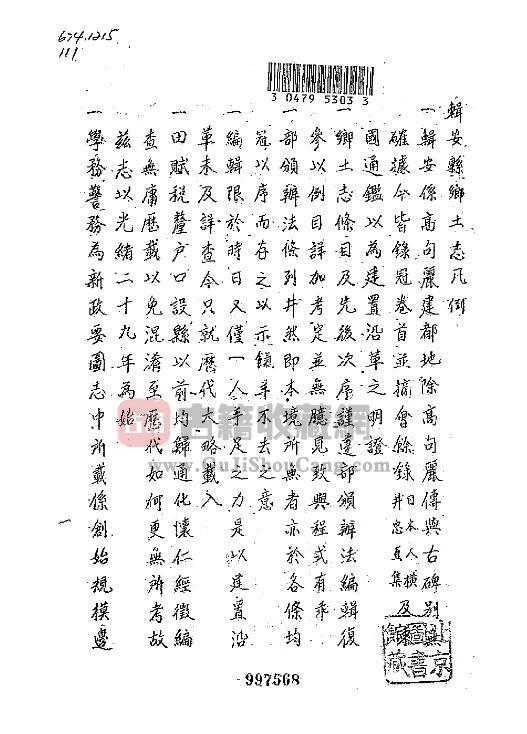 674.1215
111
3 0479 5303 3
輯安縣鄉土志凡例
一輯安係高句麗建都地除高句麗傳與古碑別無
確據今皆錄冠卷首並摘會餘錄日本人橫井忠直集及
國通鑑以為建置沿革之明證
一鄉土志條目及先後次序謹遵部頒辦法編輯復
參以例目詳加考定並無臆見致與程式有乖
一部頒辦法條列井然即本境所無者亦於各條均
冠以序而存之以示餼羊不去之意
一編輯限於時日又僅一人手足之力是以建置沿
革未及詳查今只就歷代大略載入
一田賦稅釐戶口設縣以前均歸通化懷仁經徵編
查無庸歷載以免混淆至歷代如何更無所考故
茲志以光緒二十九年為始
一學務警務為新政要圖志中所載係創始規模邊
古籍收藏網
www.GuJiShouCang.com
京
圖書館藏
997568